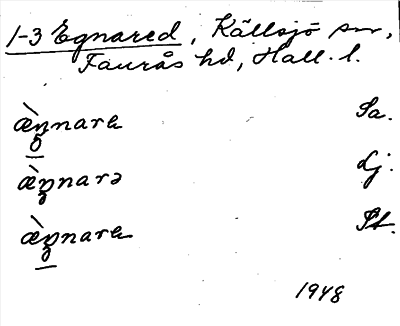 1-3 Egnared, Källsjö sn,
Faurås hd, Hall. l.
æ̀ŋnarɐ Sa.
æ̀ŋnarə Lj.
æ̀ŋnarɐ St.
1948